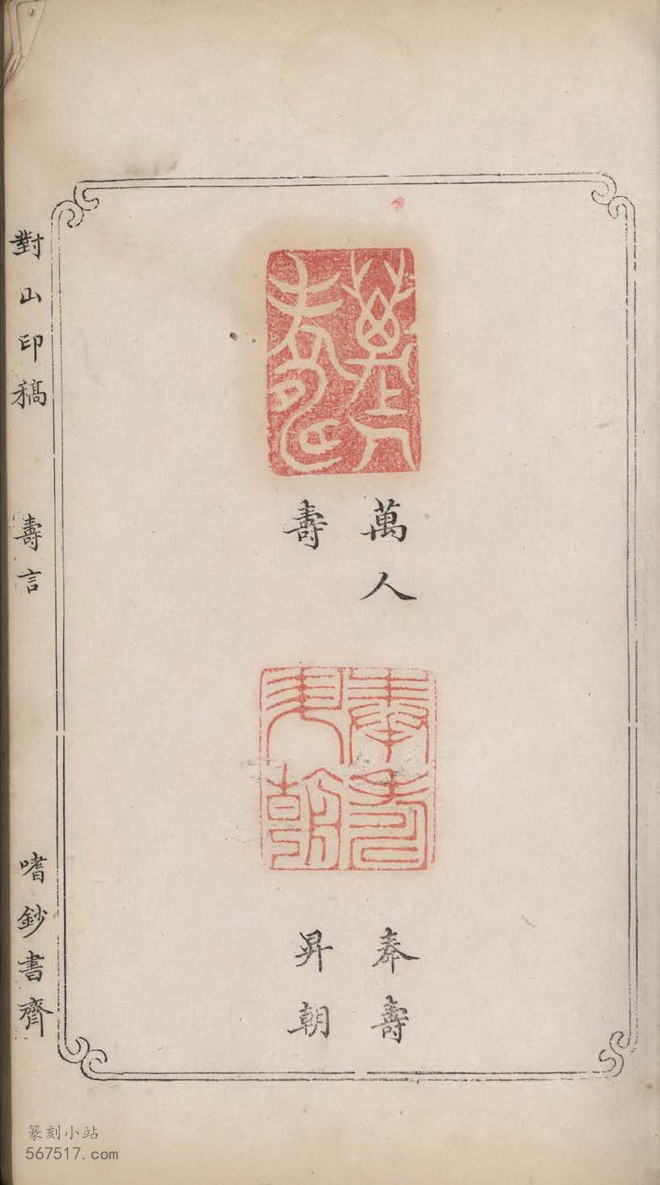 萬人
壽
奉壽
昇朝
對山印稿
壽言
嗜鈔書齊
篆刻小站
567517.com